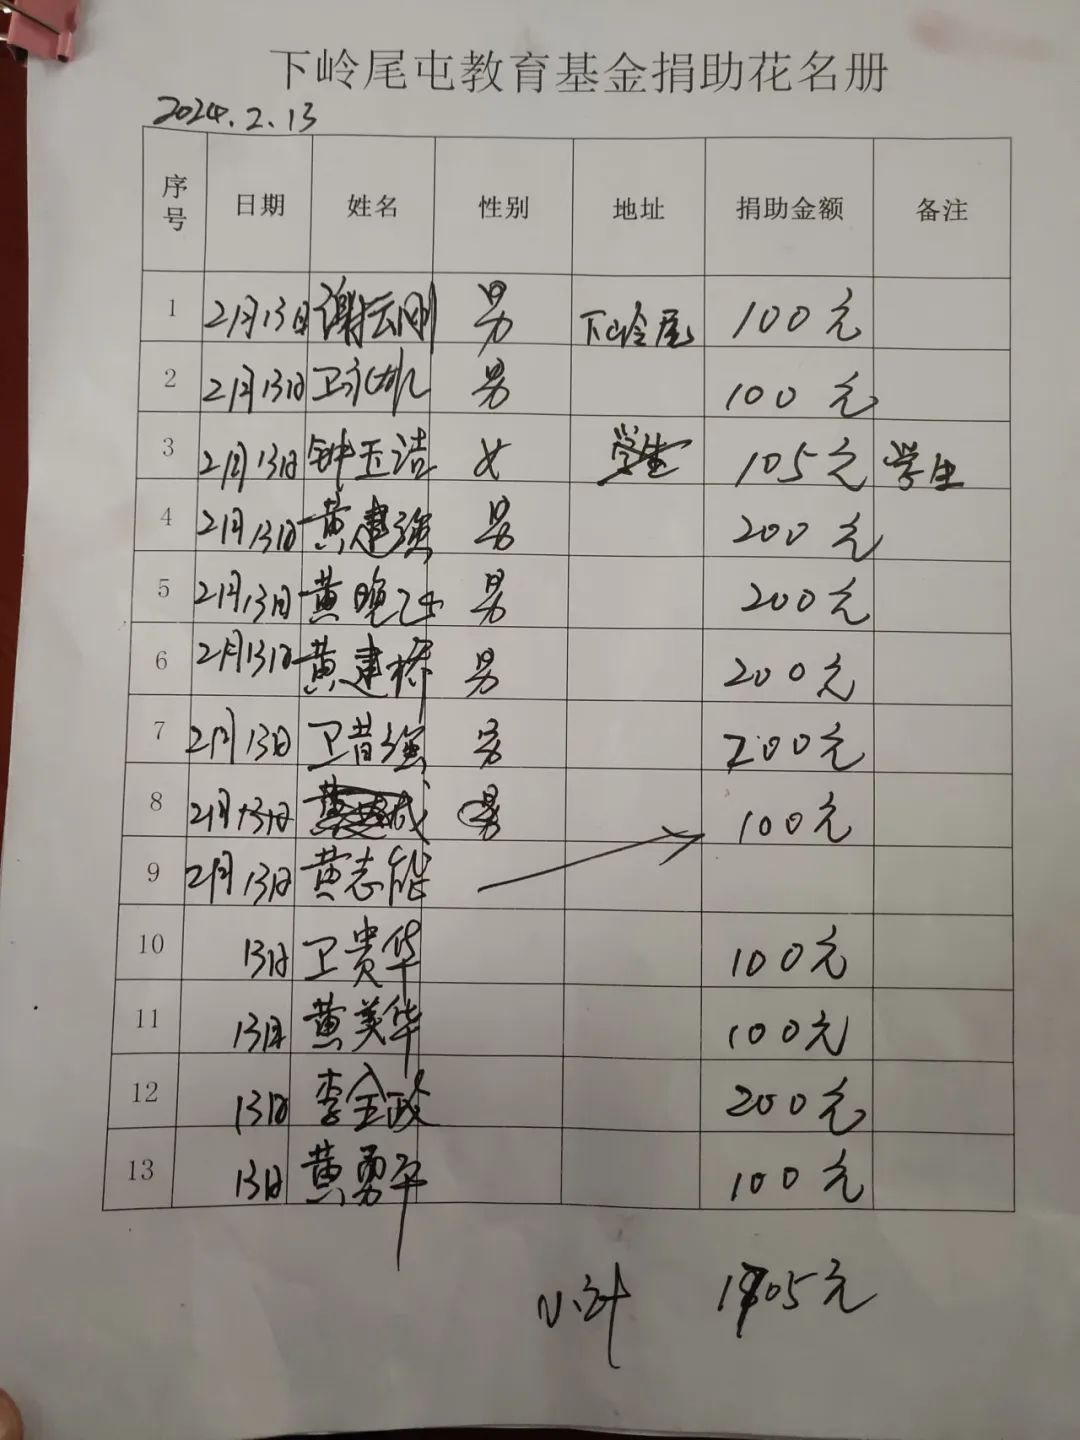 下岭尾屯教育基金捐助花名册
2024.2.13
序号 日期 姓名 性别 地址 捐助金额 备注
1 2月13日 谢云刚 男 下岭尾 100元
2 2月13日 卫永雄 男 100元
3 2月13日 钟玉洁 女 学生 105元 学生
4 2月13日 黄建强 男 200元
5 2月13日 黄晚 男 200元
6 2月13日 黄建桥 男 200元
7 2月13日 卫昔强 男 200元
8 2月13日 男 100元
9 2月13日 黄志能
10 13日 卫贵华 100元
11 13日 黄美华 100元
12 13日 李全政 200元
13 13日 黄勇平 100元
小计 1705元